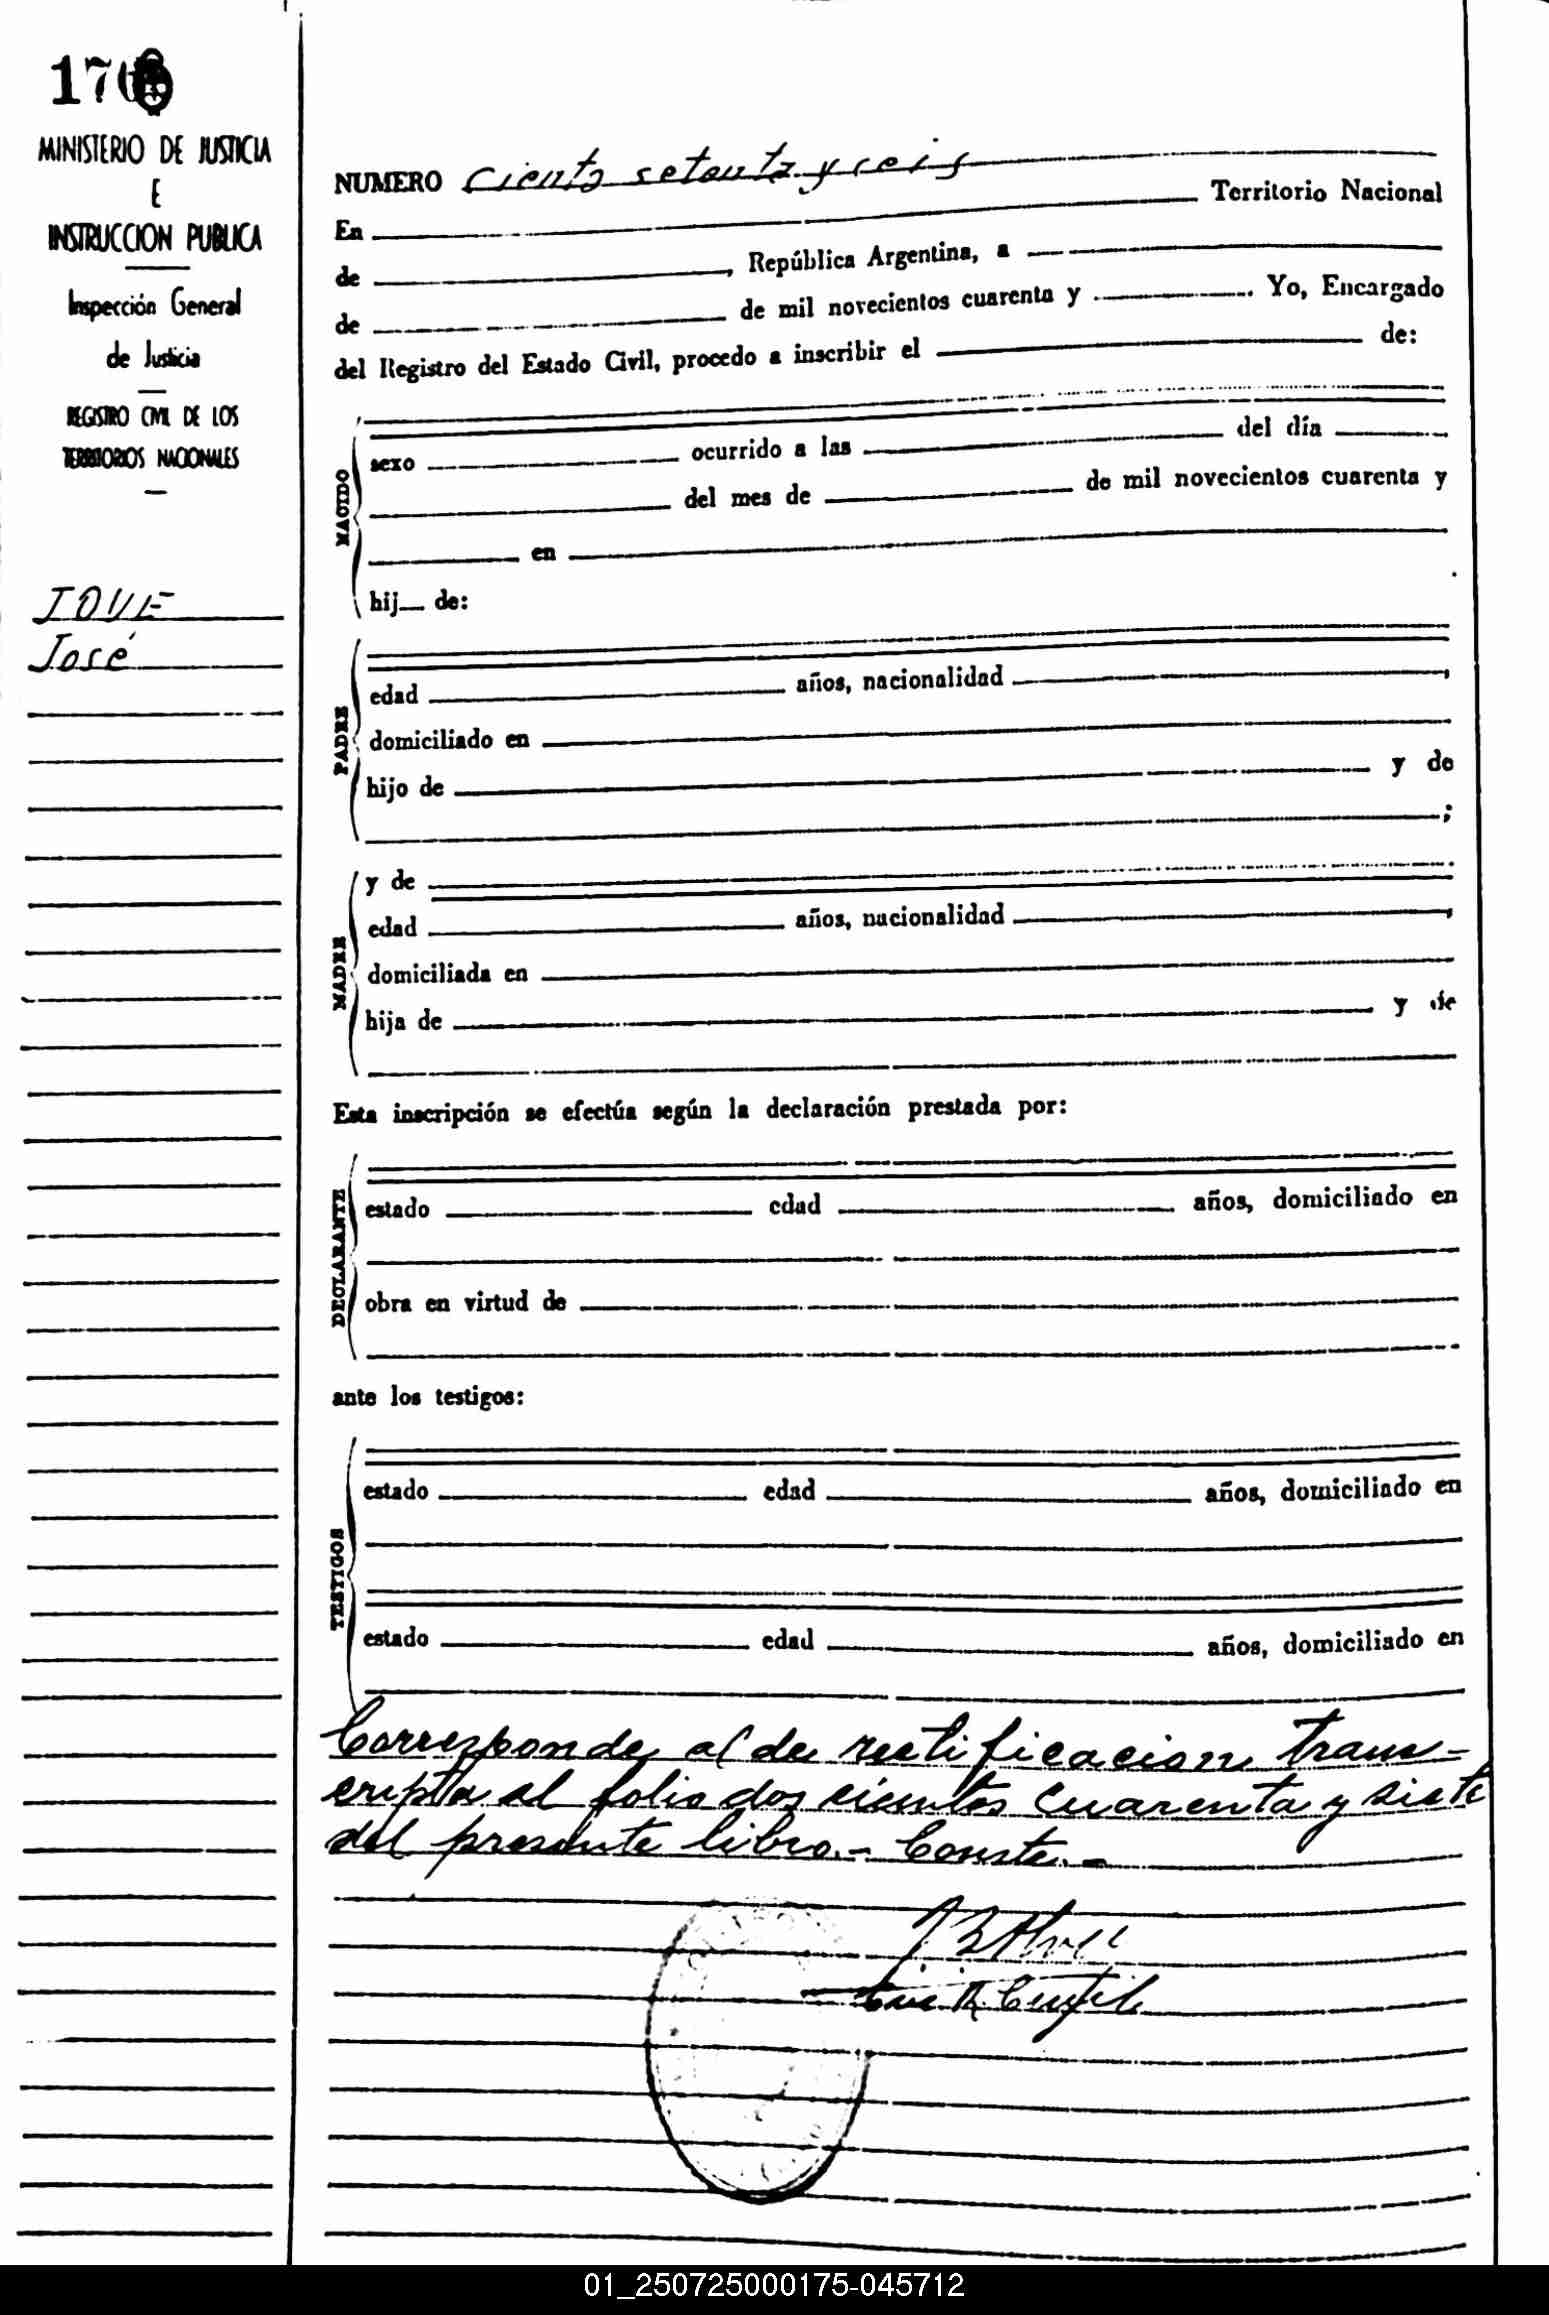 176
MINISTERIO DE JUSTICIA
E
INSTRUCCION PUBLICA
Inspección General
de Justicia
REGISTRO CIVIL DE LOS
TERRITORIOS NACIONALES
JOVE
José
NUMERO ciento setenta y seis
En Territorio Nacional
de , República Argentina, a
de de mil novecientos cuarenta y . Yo, Encargado
del Registro del Estado Civil, procedo a inscribir el de:
NACIDO
sexo ocurrido a las del día
del mes de de mil novecientos cuarenta y
en
hij de:
PADRE
edad años, nacionalidad ,
domiciliado en
hijo de y de
;
MADRE
y de
edad años, nacionalidad ,
domiciliada en
hija de y de
Esta inscripción se efectúa según la declaración prestada por:
DECLARANTE
estado edad años, domiciliado en
obra en virtud de
ante los testigos:
TESTIGOS
estado edad años, domiciliado en
estado edad años, domiciliado en
Corresponde al de rectificacion trans-
cripta al folio dos cientos cuarenta y siete
del presente libro.- Conste.-
01_250725000175-045712